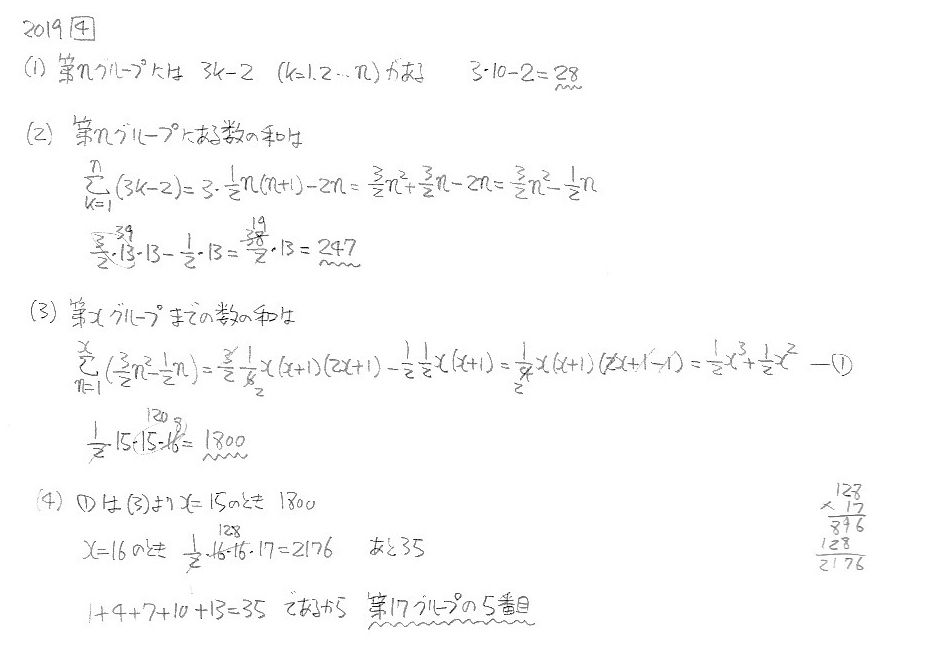 2019 4
(1) 第nグループには 3k-2 (k=1.2…n)がある 3・10-2=28
(2) 第nグループにある数の和は
n∑k=1 (3k-2)=3・1/2n(n+1)-2n=3/2n²+3/2n-2n=3/2n²-1/2n
3/2・13・13-1/2・13=38/2・13=247
39
19
(3) 第xグループまでの数の和は
x∑n=1 (3/2n²-1/2n)=3/2・1/6x(x+1)(2x+1)-1/2・1/2x(x+1)=1/4x(x+1)(2x+1-1)=1/2x³+1/2x² ―①
2
2
120 8
1/2・15・15・16=1800
(4) ①は(3)よりx=15のとき 1800
128
x=16のとき 1/2・16・16・17=2176 あと35
1+4+7+10+13=35 であるから 第17グループの5番目
128
×17
896
128
2176